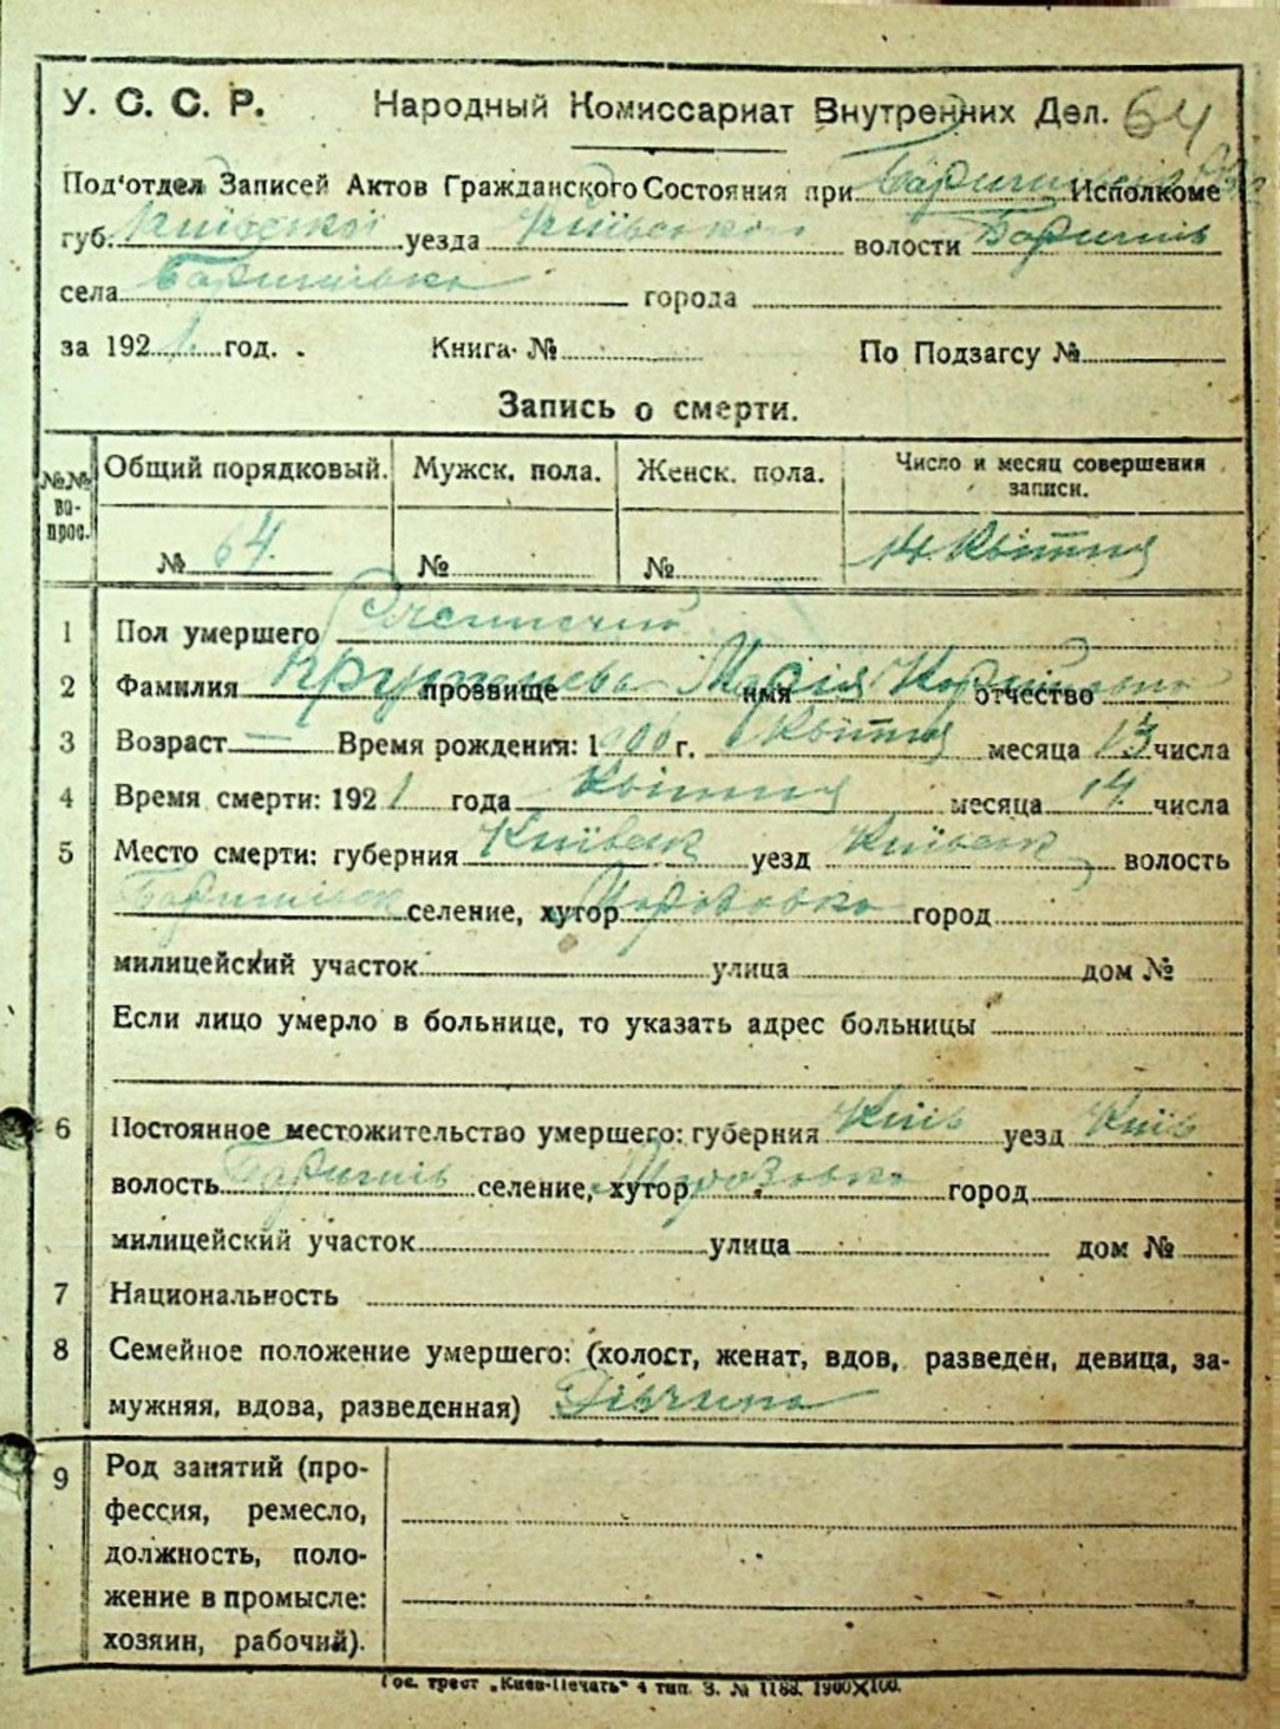 У. С. С. Р. Народный Комиссариат Внутренних Дел. 64
Под'отдел Записей Актов Гражданского Состояния при Исполкоме
губ. Київської уезда Київської волости Баришів
села Баришівка города
за 1921 год. Книга № По Подзагсу №
Запись о смерти.
№№ вопрос. Общий порядковый. Мужск. пола. Женск. пола. Число и месяц совершения
записи.
№ 64. № № 14 Квітня
1 Пол умершего
2 Фамилия прозвище Марія имя отчество
3 Возраст — Время рождения: 1 г. Квітня месяца 13 числа
4 Время смерти: 1921 года Квітня месяца 14 числа
5 Место смерти: губерния Київськ уезд Київськ волость
Баришівськ селение, хутор город
милицейский участок улица дом №
Если лицо умерло в больнице, то указать адрес больницы
6 Постоянное местожительство умершего: губерния Київ уезд Київ
волость Баришів селение, хутор город
милицейский участок улица дом №
7 Национальность
8 Семейное положение умершего: (холост, женат, вдов, разведен, девица, за-
мужняя, вдова, разведенная) Дівчина
9 Род занятий (про-
фессия, ремесло,
должность, поло-
жение в промысле:
хозяин, рабочий).
Гос. трест „Киев-Печать" 4 тип. З. № 1188. 1900X100.